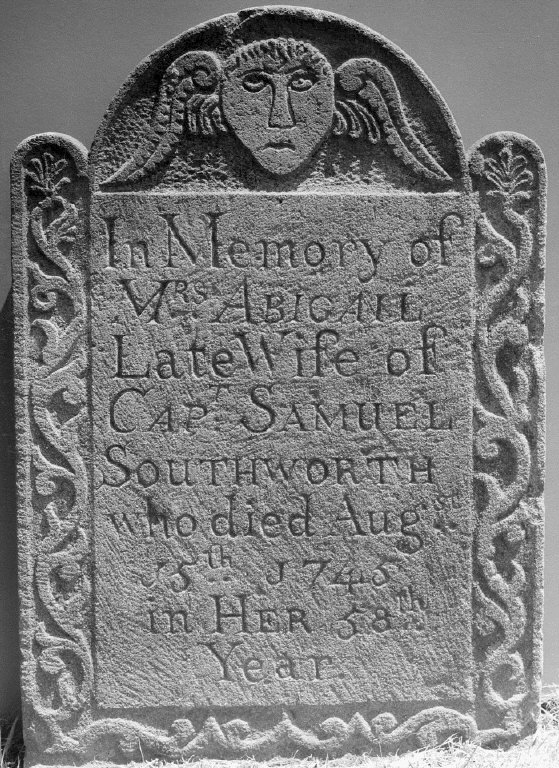 In Memory of
Mrs ABIGAIL
Late Wife of
CAPT. SAMUEL
SOUTHWORTH
who died Augst
15th 1745
in HER 58th
Year.